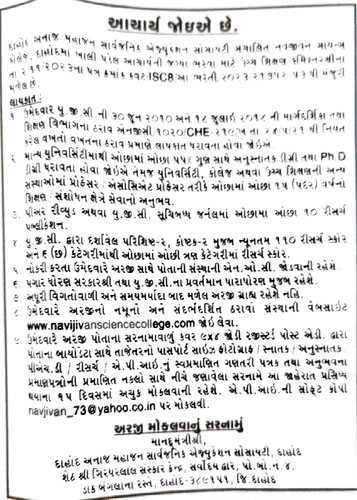 આચાર્ય જોઇએ છે.
દાહોદ અનાજ મહાજન સાર્વજનિક એજ્યુકેશન સોસાયટી સંચાલિત નવજીવન સાયન્સ
કોલેજ, દાહોદમાં ખાલી પડેલ આચાર્યની જગ્યા ભરવા માટે ઉચ્ચ શિક્ષણ કમિશ્નરશ્રીના
મળેલ છે.
લાયકાત :
૧ ઉમેદવાર યુ.જી.સી.ની ૩૦ જુન ૨૦૧૦ અને ૧૮ જુલાઈ ૨૦૧૮ ની માર્ગદર્શિકા તથા
શિક્ષણ વિભાગના ઠરાવ
કરેલ વખતો વખતના ઠરાવ પ્રમાણે લાયકાત ધરાવતા હોવા જોઇએ
૨ માન્ય યુનિવર્સિટીમાંથી ઓછામાં ઓછા ૫૫% ગુણ સાથે અનુસ્નાતક ડીગ્રી તથા Ph D
ડીગ્રી ધરાવતા હોવા જોઇએ તેમજ યુનિવર્સિટી, કોલેજ અથવા ઉચ્ચ શિક્ષણની અન્ય
સંસ્થાઓમાં પ્રોફેસર / એસોસિએટ પ્રોફેસર તરીકે ઓછામાં ઓછા ૧૫ (પંદર) વર્ષનો
શિક્ષણ / સંશોધન ક્ષેત્રે સેવાનો અનુભવ.
૩ પીઅર રીવ્યુડ અથવા યુ.જી.સી. સૂચિબધ્ધ જર્નલમાં ઓછામાં ઓછા ૧૦ રીસર્ચ
પબ્લીકેશન.
૪ યુ.જી.સી. દ્વારા દર્શાવેલ પરિશિષ્ટ-૨, કોષ્ટક-૨ મુજબ ન્યૂનતમ ૧૧૦ રીસર્ચ સ્કોર
અને ૬ (છ) કેટેગરીમાંથી ઓછામાં ઓછી ત્રણ કેટેગરીમાં રીસર્ચ સ્કોર.
૫ નોકરી કરતા ઉમેદવારે અરજી સાથે પોતાની સંસ્થાની એન.ઓ.સી. જોડવાની રહેશે.
૬ પગાર ધોરણ સરકારશ્રી તથા યુ.જી.સી.ના પ્રવર્તમાન ધારાધોરણ મુજબ રહેશે.
૭ અધૂરી વિગતોવાળી અને સમયમર્યાદા બાદ મળેલ અરજી ગ્રાહ્ય રહેશે નહિ.
૮ ઉમેદવારે અરજીનો નમૂનો અને સંદર્ભદર્શિત ઠરાવો સંસ્થાની વેબસાઇટ
www.navjivansciencecollege.com જોઇ લેવા.
૯ ઉમેદવારે અરજી પોતાના સરનામાવાળું કવર ૯x૪ જોડી રજીસ્ટર્ડ પોસ્ટ એડી. દ્વારા
પોતાના બાયોડેટા સાથે તાજેતરનો પાસપોર્ટ સાઇઝ ફોટોગ્રાફ / સ્નાતક / અનુસ્નાતક
પીએચ.ડી / રીસર્ચ / એ.પી.આઇ.નું સ્વપ્રમાણિત ગણતરી પત્રક તથા અનુભવના
પ્રમાણપત્રોની પ્રમાણિત નકલો સાથે નીચે જણાવેલા સરનામે આ જાહેરાત પ્રસિધ્ધ
થયાના ૧૫ દિવસમાં અચૂક મોકલવાની રહેશે. એ.પી.આઇ.ની સોફ્ટ કોપી
navjivan_73@yahoo.co.in પર મોકલવી.
અરજી મોકલવાનું સરનામું
માનદ્દમંત્રીશ્રી,
દાહોદ અનાજ મહાજન સાર્વજનિક એજ્યુકેશન સોસાયટી, દાહોદ
શેઠ શ્રી ગિરધરલાલ સરકાર કેન્દ્ર, સર્વોદય દ્વારા, પો.બો.નં.૪,
ડાક બંગલાના રસ્તે, દાહોદ-૩૮૯૧૫૧, જિ.દાહોદ